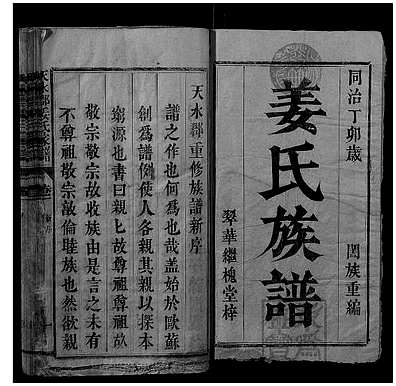 同治丁卯歲
闔族重編
姜氏族譜
翠華繼槐堂梓
天水郡重修族譜新序
譜之作也何為也哉盖始於歐蘇
創為譜例使人各親其親以探本
窮源也書曰親親故尊祖尊祖故
敬宗敬宗故收族由是言之未有
不尊祖敬宗敵倫睦族也然欲親
天水郡姜氏族譜